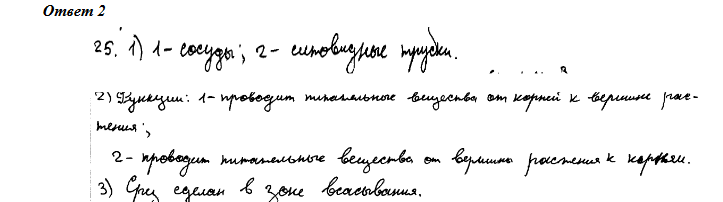 Ответ 2
25. 1) 1 - сосуды; 2 - ситовидные трубки.
2) Функции: 1 - проводит питательные вещества от корней к вершине рас-
тения;
2 - проводит питательные вещества от вершины растения к корням.
3) Срез сделан в зоне всасывания.